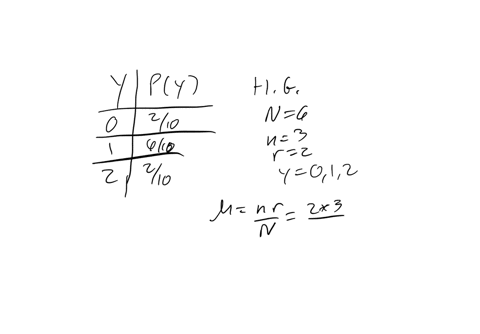 Y | P(Y)
0 | 2/10
1 | 6/10
2 | 2/10
H.G.
N=6
n=3
r=2
y=0,1,2
μ = nr/N = 2*3/